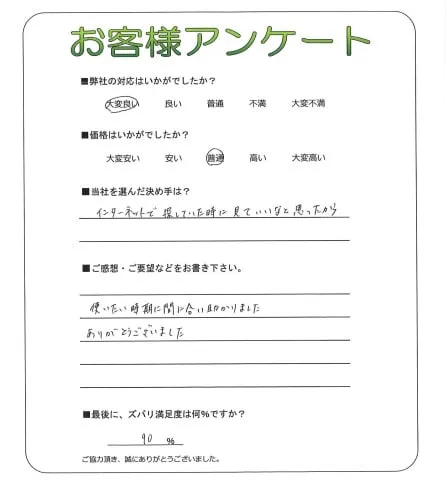 お客様アンケート
■弊社の対応はいかがでしたか?
大変良い 良い 普通 不満 大変不満
■価格はいかがでしたか?
大変安い 安い 普通 高い 大変高い
■当社を選んだ決め手は?
インターネットで探していた時に見ていいなと思ったから
■ご感想・ご要望などをお書き下さい。
使いたい時期に間に合い助かりました
ありがとうございました
■最後に、ズバリ満足度は何%ですか?
90 %
ご協力頂き、誠にありがとうございました。